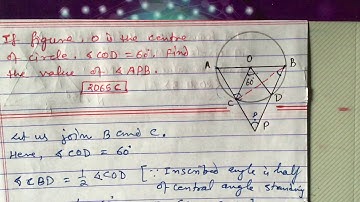 If figure, O is the centre
of circle. ∡COD = 60°. Find
the value of ∡APB.
[2065 C]
A O B
60°
C D
P
Let us join B and C.
Here, ∡COD = 60°
∡CBD = 1/2 ∡COD [∵ Inscribed angle is half
of central angle standing